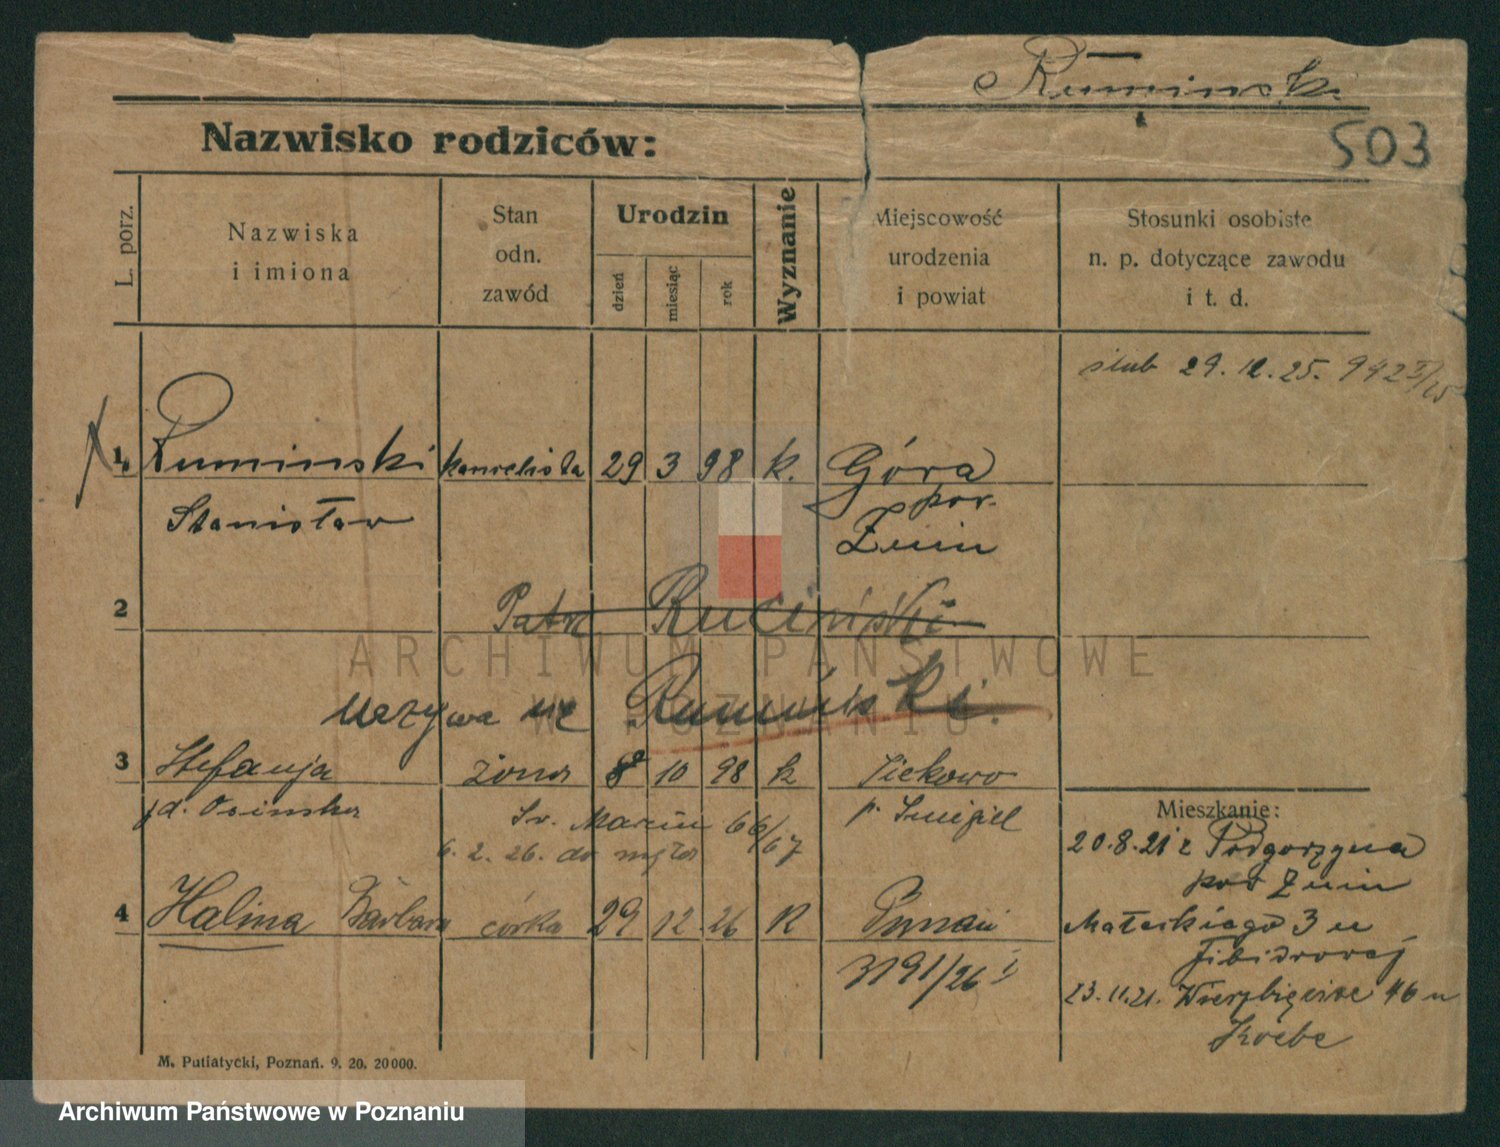 Rumiński
503
Nazwisko rodziców:
L. porz.
Nazwiska
i imiona
Stan
odn.
zawód
Urodzin
dzień
miesiąc
rok
Wyznanie
Miejscowość
urodzenia
i powiat
Stosunki osobiste
n. p. dotyczące zawodu
i t. d.
ślub 29.12.25. 942
1. Rumiński kancelista 29 3 98 k. Góra
Stanisław pow.
Żnin
2
Patrz Ruciński
używa się Rumiński.
3 Stefanja żona 8 10 98 k
d. Osińska p. Śmigiel
Św. Marcin 66/67
6.2.26. do męża
4 Halina Barbara córka 29 12 26 k Poznań
3191/26 I
Mieszkanie:
20.8.21 z Podgorzyna
pow Żnin
3 u
23.11.21. Wierzbięcice 46 u
M. Putiatycki, Poznań. 9. 20. 20000.
ARCHIWUM PAŃSTWOWE
W POZNANIU
Archiwum Państwowe w Poznaniu